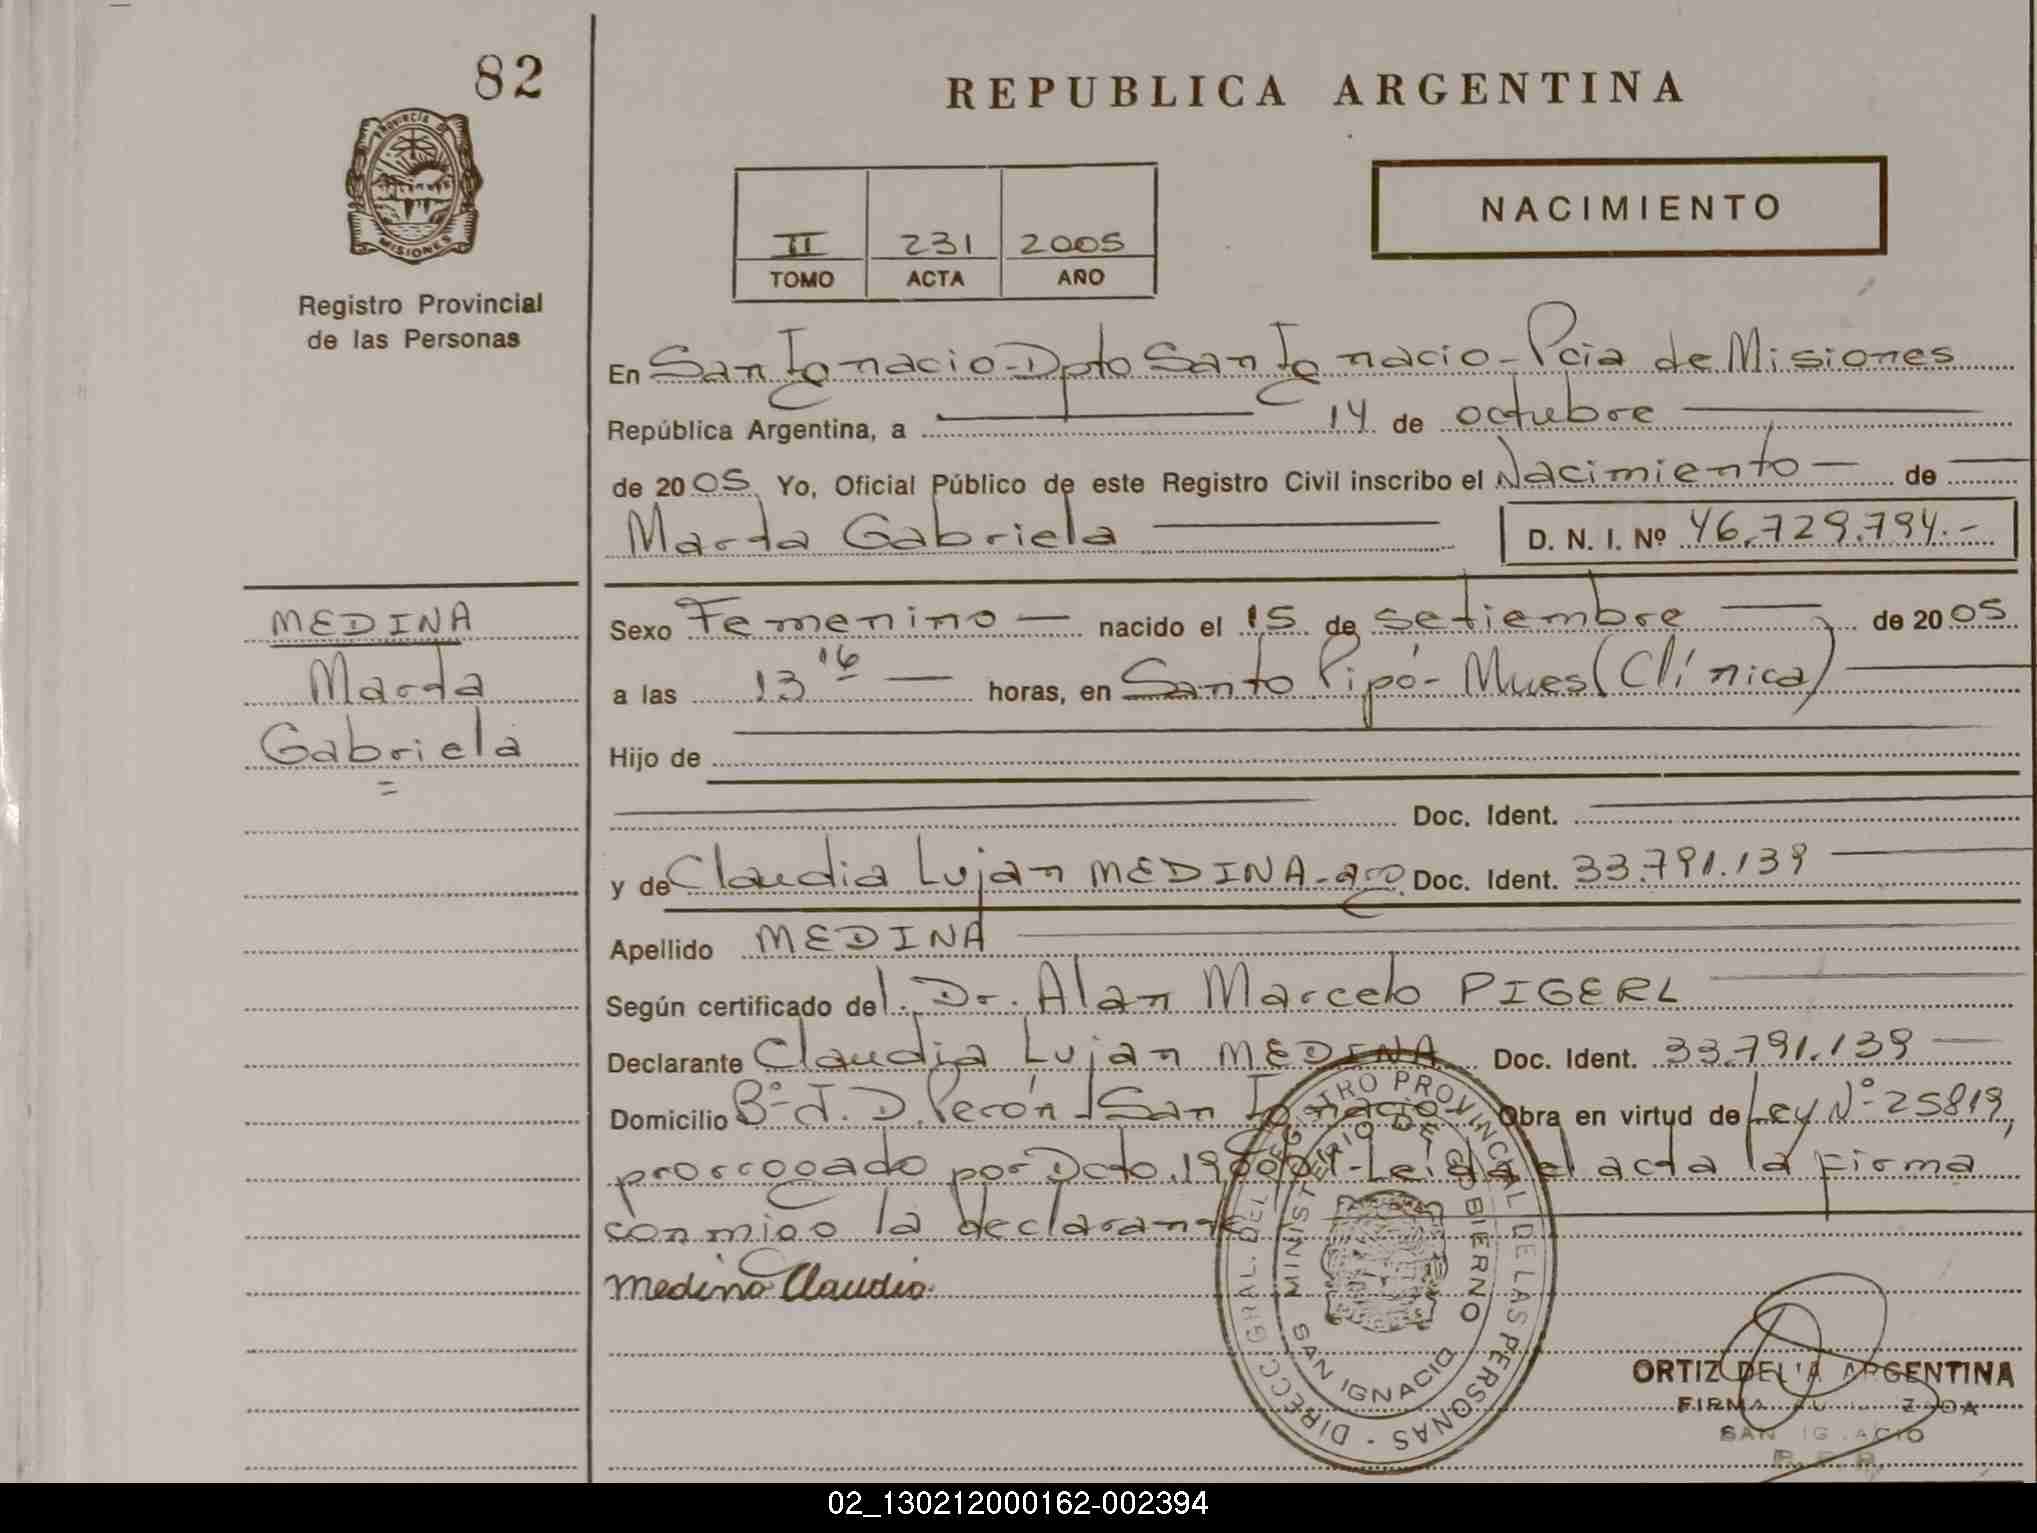 82
REPUBLICA ARGENTINA
PROVINCIA DE
MISIONES
Registro Provincial
de las Personas
NACIMIENTO
II 231 2005
TOMO ACTA AÑO
En San Ignacio - Dpto San Ignacio - Pcia de Misiones
República Argentina, a 14 de octubre
de 2005 Yo, Oficial Público de este Registro Civil inscribo el Nacimiento - de
Marta Gabriela D. N. I. Nº 46.729.794.-
MEDINA
Marta
Gabriela
Sexo Femenino - nacido el 15 de setiembre de 2005
a las 13 16 - horas, en Santo Pipó - Mnes (Clínica)
Hijo de
Doc. Ident.
y de Claudia Lujan MEDINA - arg. Doc. Ident. 33.791.139
Apellido MEDINA
Según certificado del. Dr. Alan Marcelo PIGERL
Declarante Claudia Lujan MEDINA Doc. Ident. 33.791.139 -
Domicilio Bº J. D. Perón - San Ignacio - Obra en virtud de Ley Nº 25819,
prorrogado por Dcto. - Leída el acta la firma
conmigo la declarante
Medina Claudia.
DIRECC. GRAL. DEL REGISTRO PROVINCIAL DE LAS PERSONAS -
MINISTERIO DE GOBIERNO
SAN IGNACIO
ORTIZ ARGENTINA
FIRMA
SAN IGNACIO
02_130212000162-002394